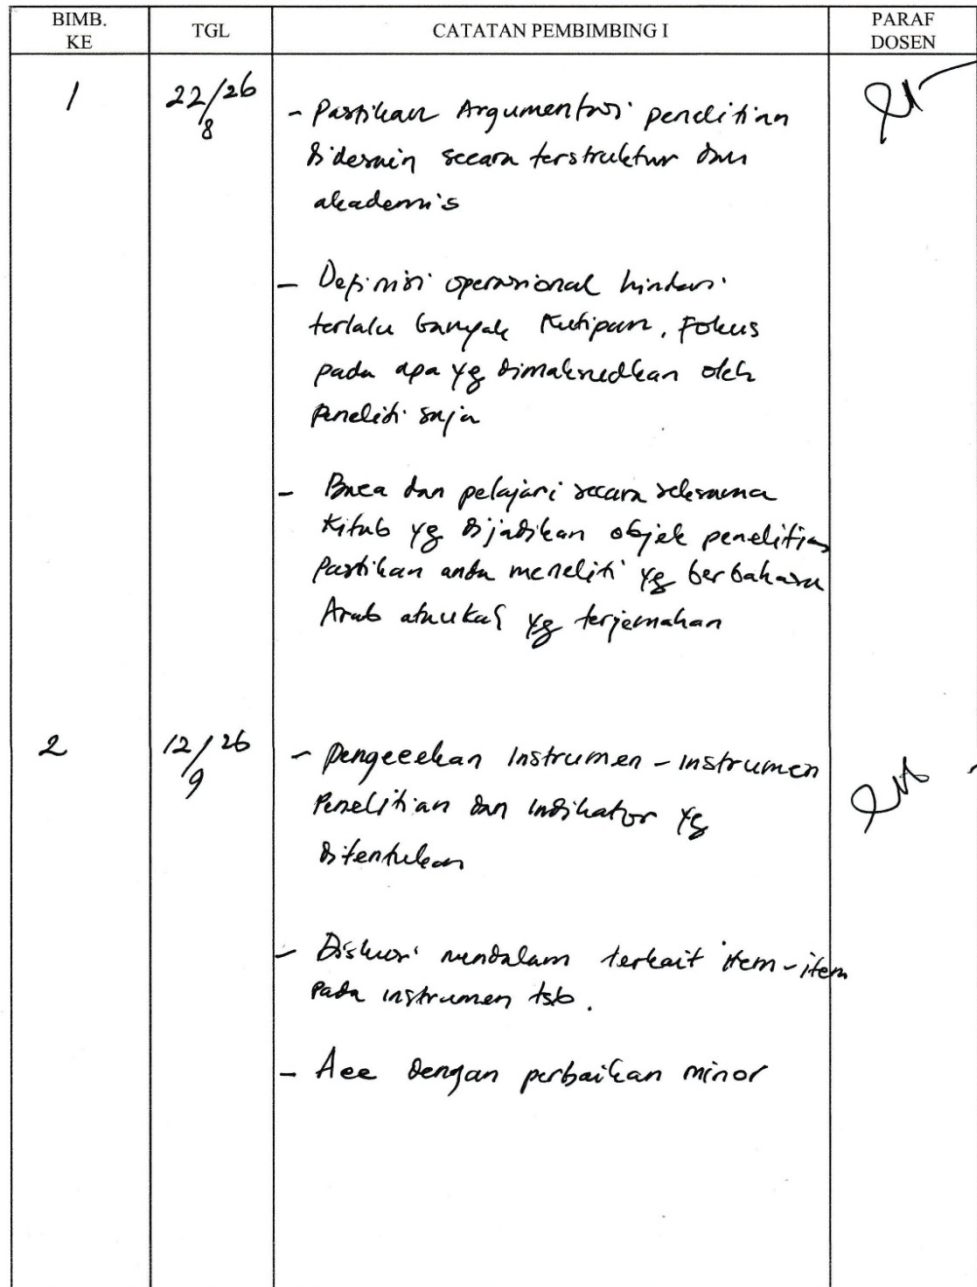 BIMB. KE
TGL
CATATAN PEMBIMBING I
PARAF DOSEN
1
22/8/26
- Pastikan Argumentasi penelitian
didesain secara terstruktur dan
akademis
- Definisi operasional hindari
terlalu banyak Kutipan. Fokus
pada apa yg dimaksudkan oleh
Peneliti saja
- Baca dan pelajari secara seksama
Kitab yg dijadikan objek penelitian
Pastikan anda meneliti yg berbahasa
Arab yg terjemahan
2
12/9/26
- Pengecekan Instrumen - instrumen
Penelitian dan Indikator yg
ditentukan
- Diskusi mendalam terkait item-item
pada instrumen tsb.
- Acc dengan perbaikan minor